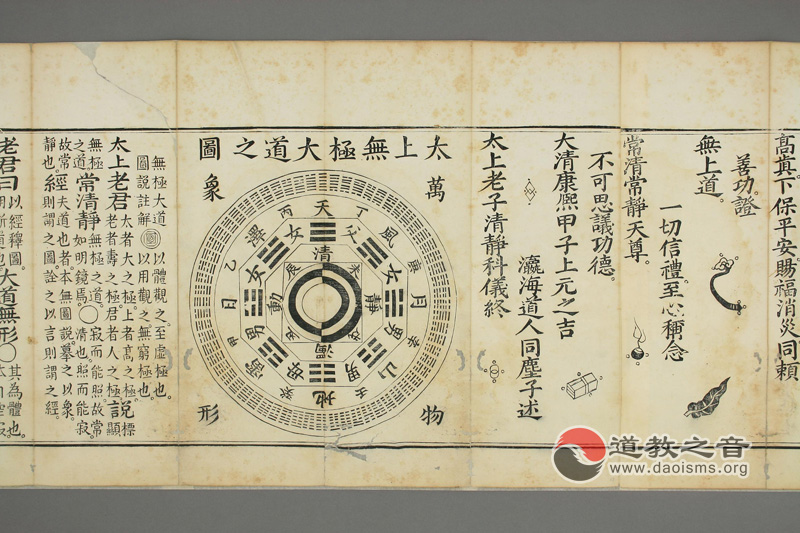 高真下保平安賜福消災同賴
善功證
無上道
一切信禮至心稱念
常清常靜天尊
不可思議功德
大清康熙甲子上元之吉
瀛海道人同塵子述
太上老子清靜科儀終
太上無極大道之圖
萬
物
象
形
天
丁
風
庚
月
辛
山
壬
地
日
甲
乙
澤
丙
父
女
女
男
男
母
清
靜
動
無極大道
以體觀之至虛極也
圖說註解
以用觀之無窮極也
太上老君
太者大之極上者高之極
老者壽之極君者人之極
說
標顯
無極之道
常清靜
無極之道寂而能照故常
清也照而能寂
故常
如明鏡焉
靜也
經
夫道也者本無圖說摹之以象
則謂之圖詮之以言則謂之經
老君曰
以經釋圖
大道無形
其為體也
道教之音
www.daoisms.org